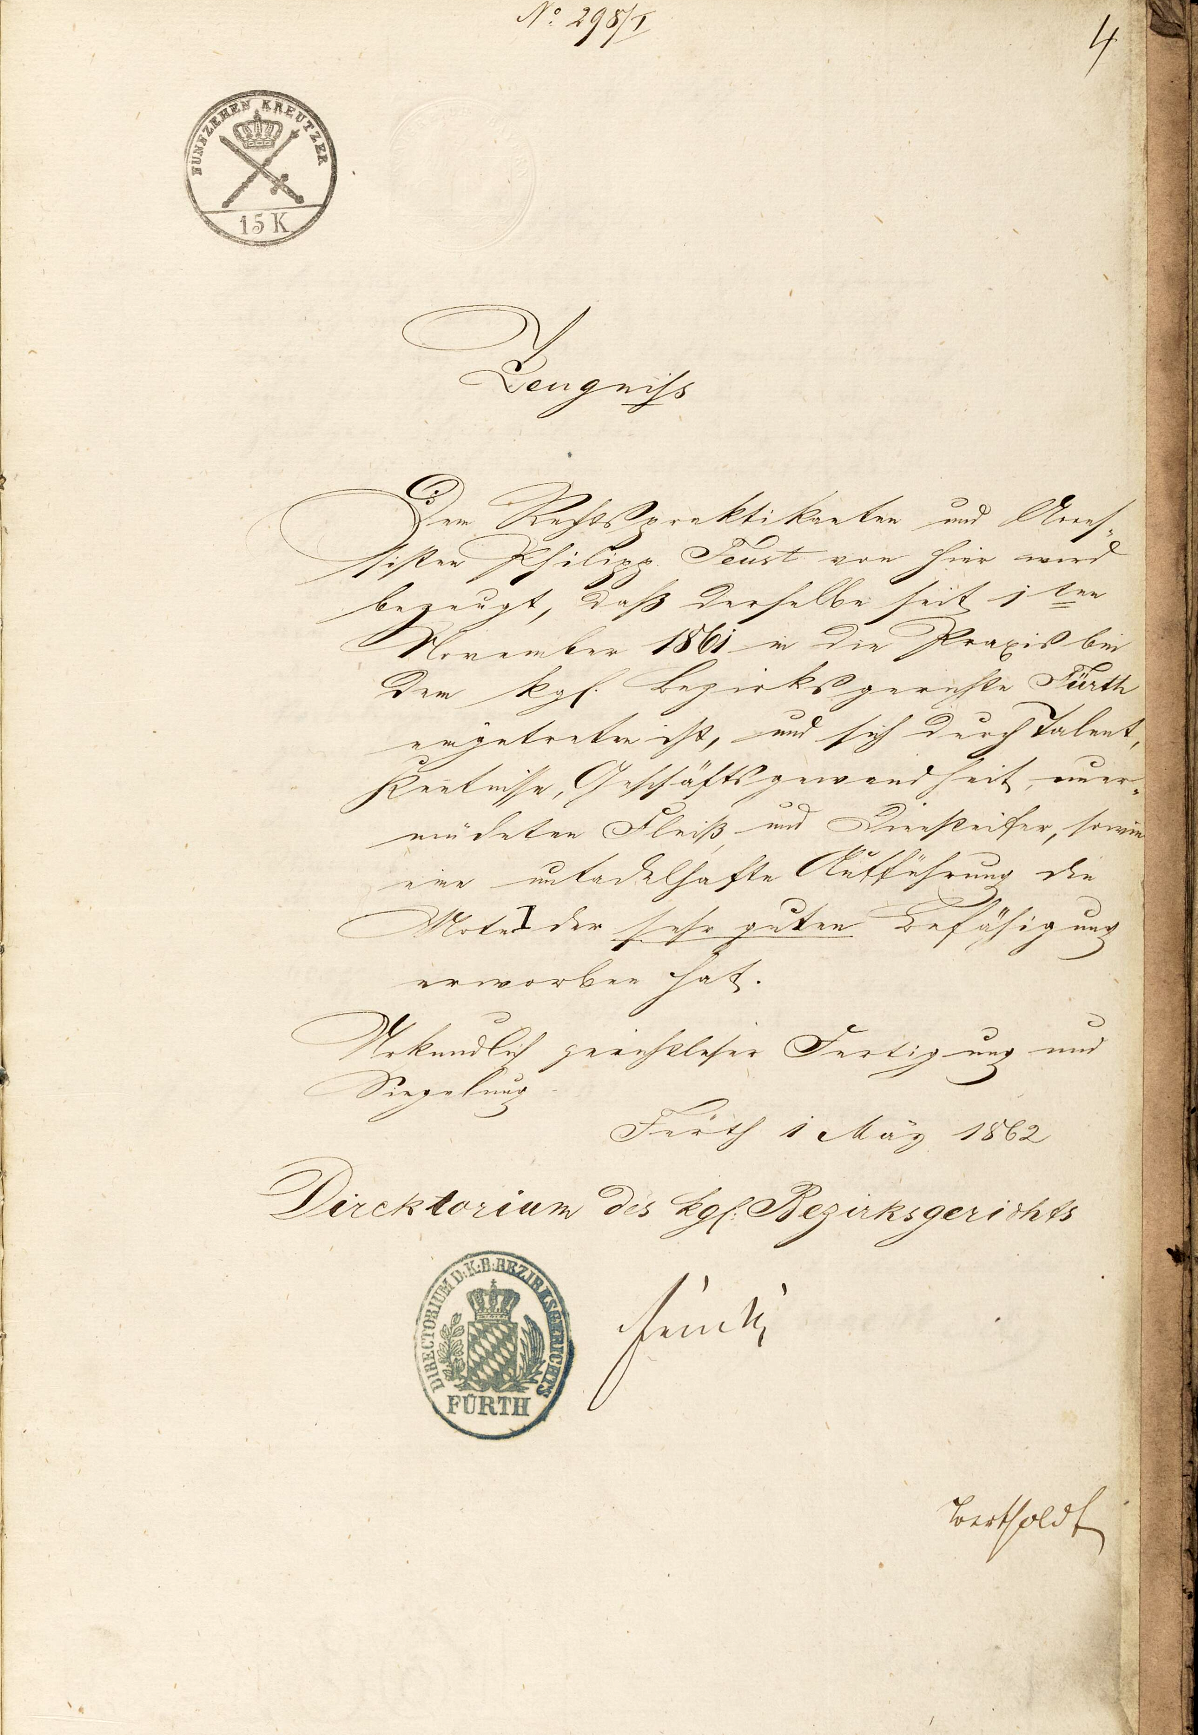 No. 298/I
4
FUNFZEHEN KREUTZER
15 K
Zeugniss
Dem Rechtspraktikanten und Acces-
sisten Philipp Feust von hier wird
bezeugt, daß derselbe seit 1ten
November 1861 in die Praxis bei
dem kgl. Bezirksgerichte Fürth
eingetreten ist, und sich durch Talent,
Kentnisse, Geschäftsgewandheit, uner-
müdeten Fleiß und Diensteifer, sowie
eine untadelhafte Aufführung die
Note I der sehr guten Befähigung
erworben hat.
Urkundlich gerichtlicher Fertigung und
Siegelung
Fürth 1 März 1862
Direktorium des kgl. Bezirksgerichts
DIRECTORIUM D.K.B. BEZIRKSGERICHTS
FÜRTH
Bertholdt